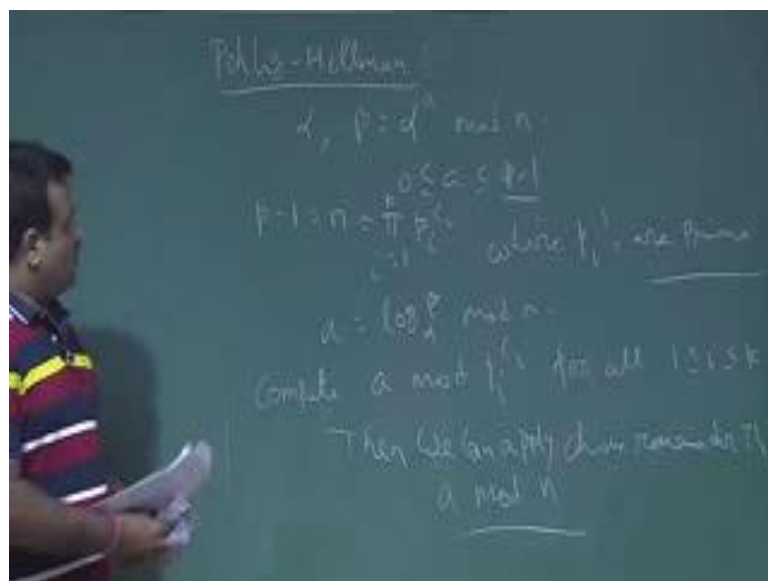 Pohlig-Hellman
α, β = α^a mod n.
0 ≤ a ≤ p-1
p-1 = n = ∏_{i=1}^{k} p_i^{c_i} where p_i's are Prime
a = log_α β mod n.
Compute a mod p_i^{c_i} for all 1 ≤ i ≤ k
Then we can apply remainder Th
a mod n